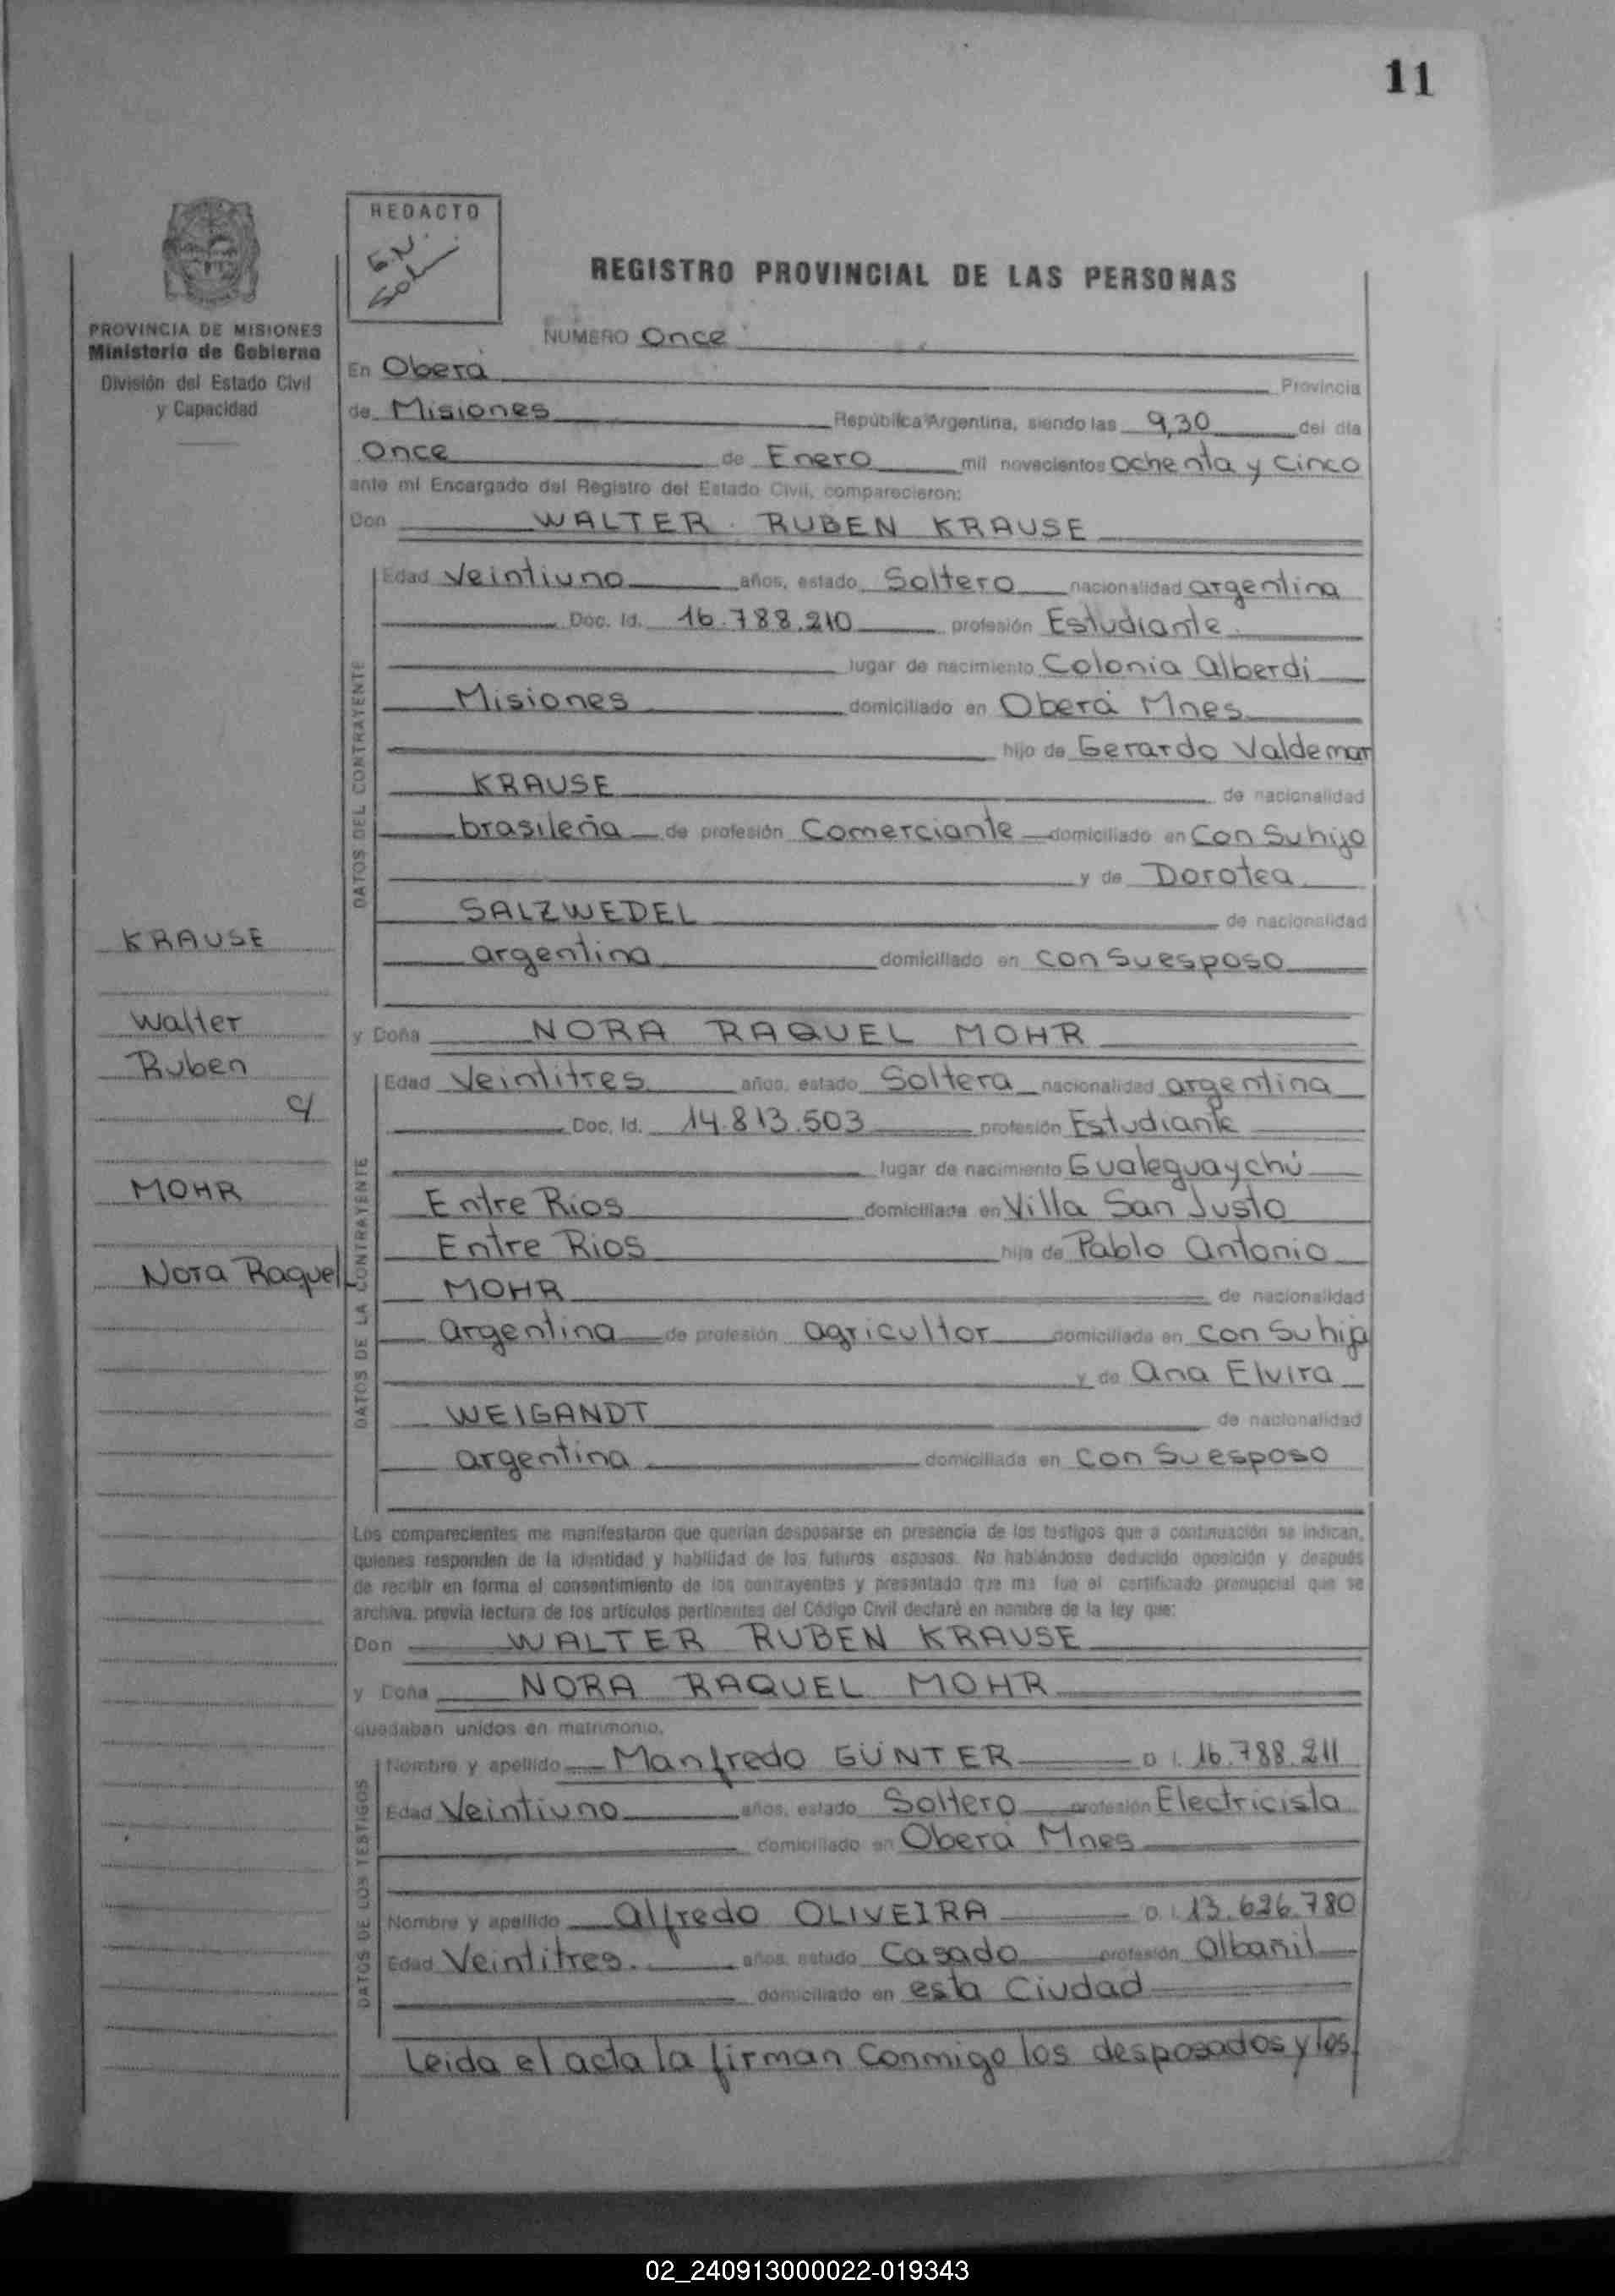 11
REDACTO
REGISTRO PROVINCIAL DE LAS PERSONAS
PROVINCIA DE MISIONES
Ministerio de Gobierno
División del Estado Civil
y Capacidad
NUMERO Once
En Oberá Provincia
de Misiones República Argentina, siendo las 9,30 del día
Once de Enero mil novecientos ochenta y cinco
ante mí Encargado del Registro del Estado Civil, comparecieron:
Don WALTER RUBEN KRAUSE
DATOS DEL CONTRAYENTE
Edad Veintiuno años, estado Soltero nacionalidad argentina
Doc. Id. 16.788.210 profesión Estudiante
lugar de nacimiento Colonia Alberdi
Misiones domiciliado en Oberá Mnes
hijo de Gerardo Valdemar
KRAUSE de nacionalidad
brasileña de profesión Comerciante domiciliado en Con Su hijo
y de Dorotea
SALZWEDEL de nacionalidad
argentina domiciliado en con su esposo
y Doña NORA RAQUEL MOHR
DATOS DE LA CONTRAYENTE
Edad Veintitres años, estado Soltera nacionalidad argentina
Doc. Id. 14.813.503 profesión Estudiante
lugar de nacimiento Gualeguaychú
Entre Rios domiciliada en Villa San Justo
Entre Rios hija de Pablo Antonio
MOHR de nacionalidad
argentina de profesión agricultor domiciliado en con su hija
y de Ana Elvira
WEIGANDT de nacionalidad
argentina domiciliada en con su esposo
KRAUSE
Walter
Ruben
c/
MOHR
Nora Raquel
Los comparecientes me manifestaron que querían desposarse en presencia de los testigos que a continuación se indican,
quienes responden de la identidad y habilidad de los futuros esposos. No habiéndose deducido oposición y después
de recibir en forma el consentimiento de los contrayentes y presentado que me fue el certificado prenupcial que se
archiva, previa lectura de los artículos pertinentes del Código Civil declaré en nombre de la ley que:
Don WALTER RUBEN KRAUSE
y Doña NORA RAQUEL MOHR
quedaban unidos en matrimonio.
DATOS DE LOS TESTIGOS
Nombre y apellido Manfredo GÜNTER D. I. 16.788.211
Edad Veintiuno años, estado Soltero profesión Electricista
domiciliado en Oberá Mnes
Nombre y apellido Alfredo OLIVEIRA D. I. 13.626.780
Edad Veintitres años, estado Casado profesión Albañil
domiciliado en esta Ciudad
Leida el acta la firman Conmigo los desposados y los
02_240913000022-019343